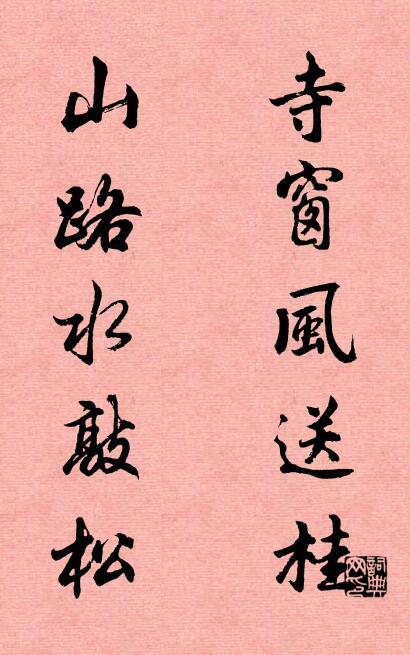 寺窗風送桂
山路水敲松
詞典網